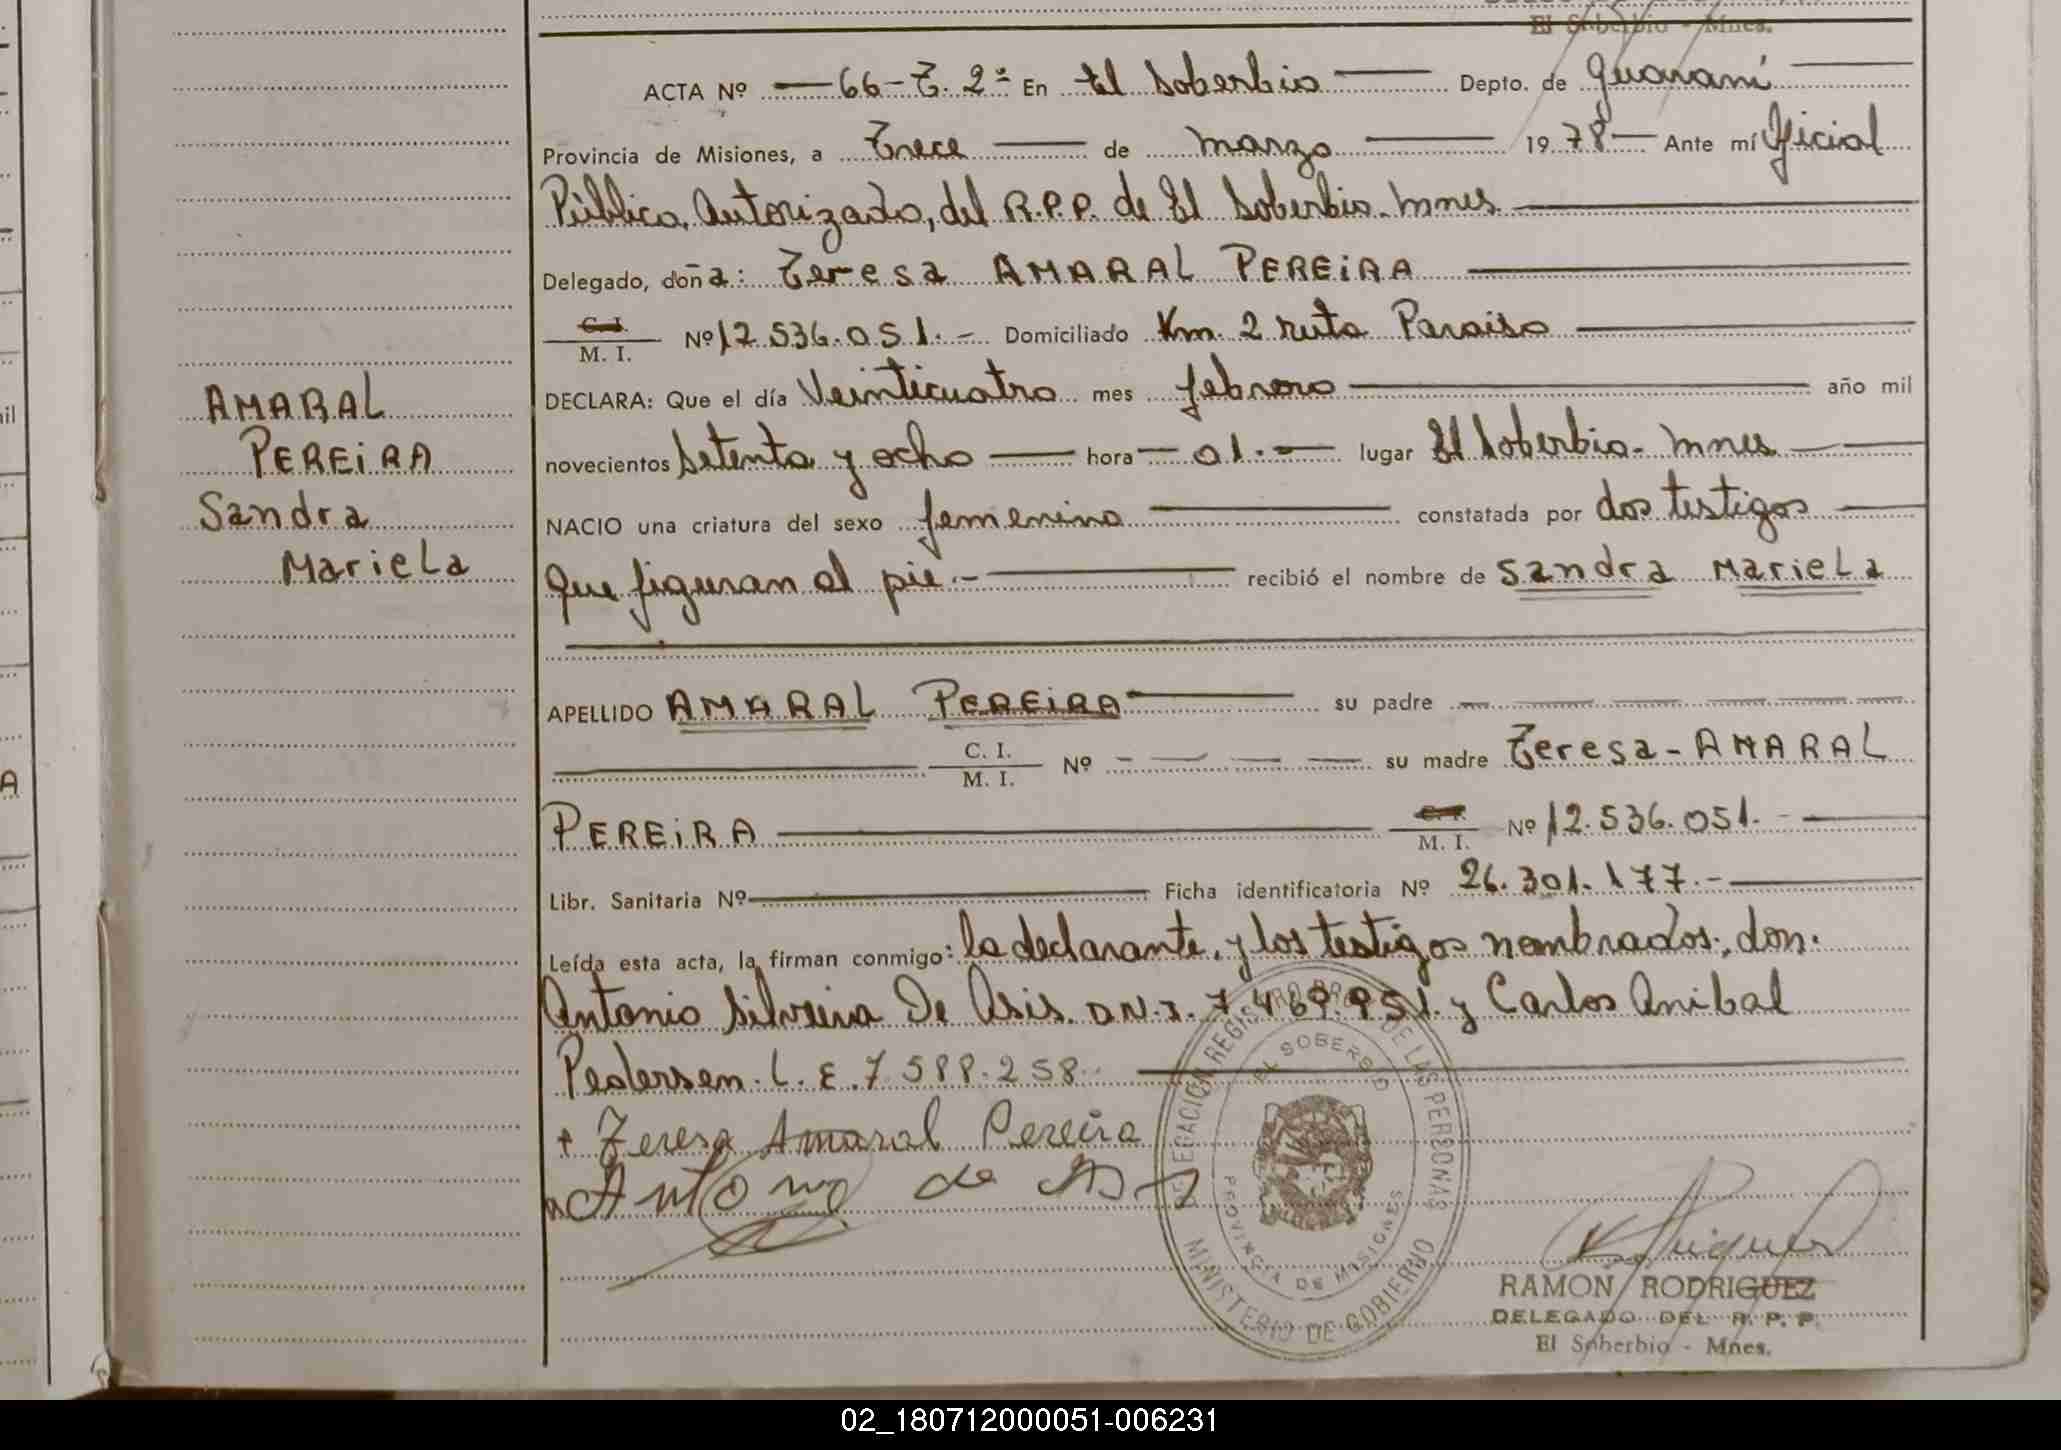 El Soberbio - Mnes.
ACTA Nº 66-T. 2º En El Soberbio Depto. de Guaraní
Provincia de Misiones, a Trece de marzo 19 78 Ante mí Oficial
Público, Autorizado, del R.P.P. de El Soberbio. Mnes.
Delegado, doña: Teresa AMARAL PEREIRA
C. I.
M. I. Nº 12.536.051.- Domiciliado Km. 2 ruta Paraiso
DECLARA: Que el día Veinticuatro mes febrero año mil
novecientos Setenta y ocho hora 01.- lugar El Soberbio- Mnes
NACIO una criatura del sexo femenino constatada por dos testigos
que figuran al pie.- recibió el nombre de Sandra Mariela
AMARAL
PEREIRA
Sandra
Mariela
APELLIDO AMARAL PEREIRA su padre
C. I.
M. I. Nº su madre Teresa - AMARAL
PEREIRA C. I.
M. I. Nº 12.536.051.-
Libr. Sanitaria Nº Ficha identificatoria Nº 26.301.177.-
Leída esta acta, la firman conmigo: la declarante, y los testigos nombrados; don.
Antonio Silveira De Asis. D.N.I. 7.469.951. y Carlos Anibal
Pedersen. L.E. 7 588.258
+ Teresa Amaral Pereira
Antonio de Asis
DELEGACION REGISTRO PROV. DE LAS PERSONAS
EL SOBERBIO
PROVINCIA DE MISIONES
MINISTERIO DE GOBIERNO
RAMON RODRIGUEZ
DELEGADO DEL R. P. P.
El Soberbio - Mnes.
02_180712000051-006231